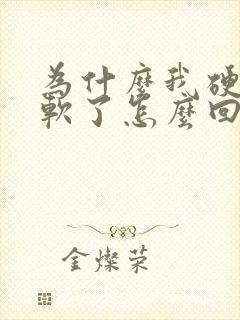 为什麼我硬
軟了怎麼回
金燦荣